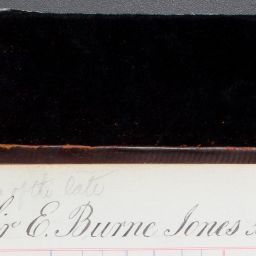 of the late
Sir E. Burne Jones